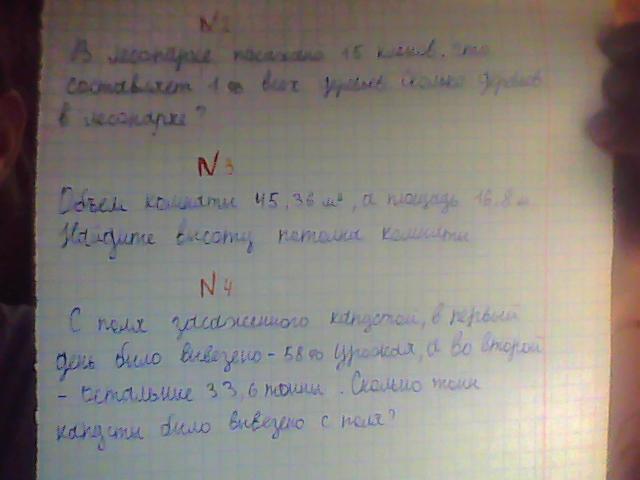 N2
В лесопарке посажано 15 кленов. Это
составляет 1 % всех деревьев. Сколько деревьев
в лесопарке?
N3
Объем комнаты 45,36 м³, а площадь 16,8 м
Найдите высоту потолка комнаты
N4
С поля засаженного капустой, в первый
день было вывезено - 58 % урожая, а во второй
- остальные 33,6 тонны. Сколько тонн
капусты было вывезено с поля?